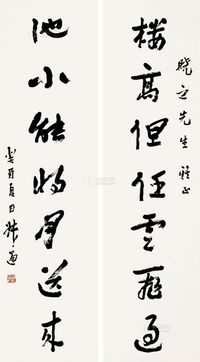 楼高但任云飞过
晓立先生雅正
池小能将月送来
癸酉夏日林